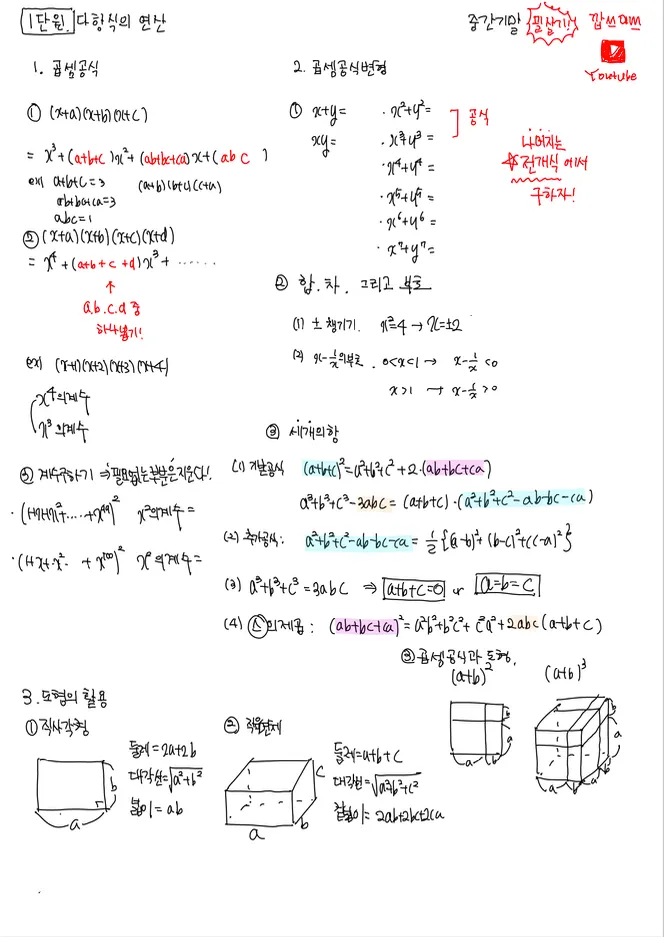 1단원. 다항식의 연산
중간기말 필살기! 깝쓰
Youtube
1. 곱셈공식
① (x+a)(x+b)(x+c)
= x³+(a+b+c)x²+(ab+bc+ca)x+(abc)
ex) a+b+c=3 (a+b)(b+c)(c+a)
ab+bc+ca=3
abc=1
② (x+a)(x+b)(x+c)(x+d)
= x⁴+(a+b+c+d)x³+ ······
↑
a.b.c.d 중
하나뽑기!
ex) (x+1)(x+2)(x+3)(x+4)
x⁴의계수
x³의계수
③ 계수구하기 ⇒ 필요없는부분은지운다!
2. 곱셈공식변형
① x+y= · x²+y²=
xy= · x³+y³=
공식
· x⁴+y⁴=
· x⁵+y⁵=
· x⁶+y⁶=
· x⁷+y⁷=
나머지는
☆전개식에서
구하자!
② 합.차. 그리고 부호
(1) ± 챙기기. x²=4 → x=±2
(2) x-1/x의부호. 0<x<1 → x-1/x<0
x>1 → x-1/x>0
③ 세개의항
(1) 기본공식 (a+b+c)²=a²+b²+c²+2·(ab+bc+ca)
a³+b³+c³-3abc=(a+b+c)·(a²+b²+c²-ab-bc-ca)
(2) 추가공식: a²+b²+c²-ab-bc-ca=1/2{(a-b)²+(b-c)²+(c-a)²}
(3) a³+b³+c³=3abc ⇒ a+b+c=0 or a=b=c
(4) 의제곱: (ab+bc+ca)²=a²b²+b²c²+c²a²+2abc(a+b+c)
3. 도형의 활용
① 직사각형
둘레=2a+2b
대각선=√a²+b²
넓이=ab
a
b
② 직육면체
둘레=a+b+c
대각선=√a²+b²+c²
겉넓이=2ab+2bc+2ca
a
b
c
③ 곱셈공식과 도형.
(a+b)² (a+b)³
a b
b
a
a b
b
a